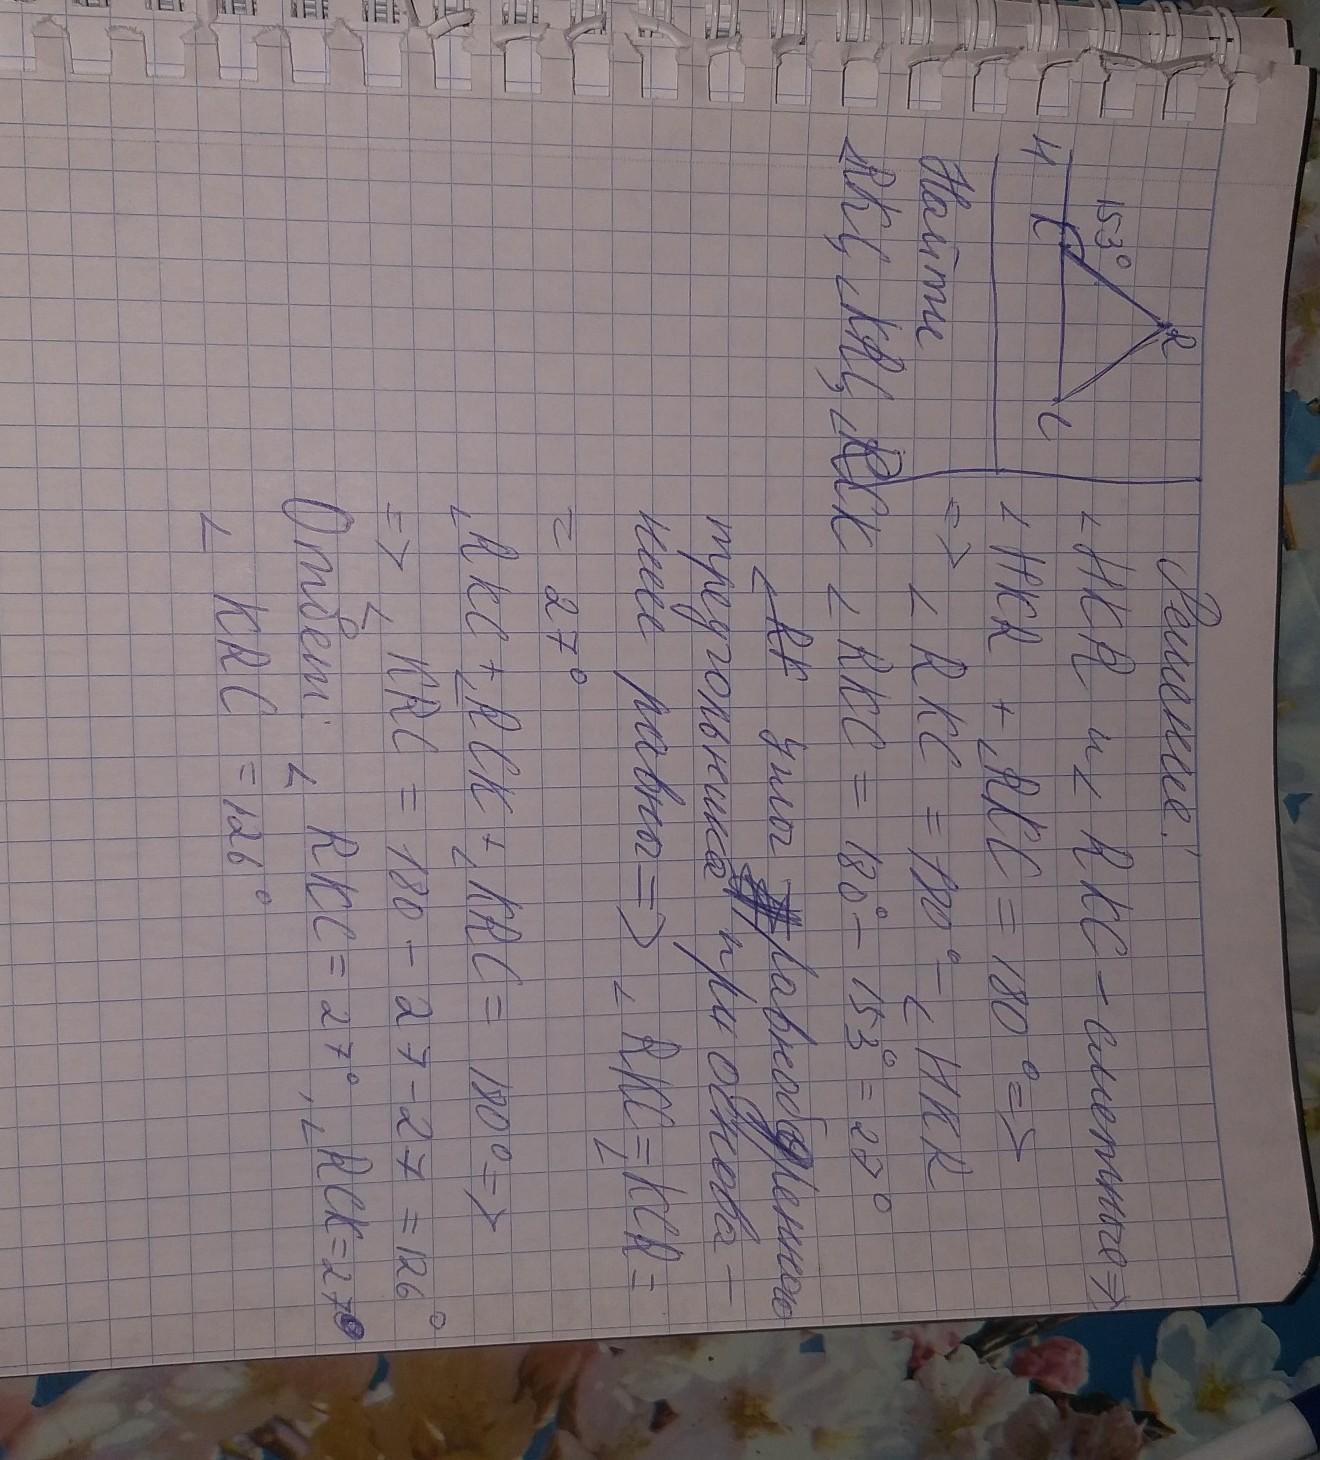 153°
R
Н К С
Найти
∠RKC, ∠KRC, ∠RCK
Решение:
∠HKR и ∠RKC – смежные =>
∠HKR + ∠RKC = 180° =>
=> ∠RKC = 180° – ∠HKR
∠RKC = 180° – 153° = 27°
углы равнобедренного
треугольника при основа –
ние равны => ∠RKC = ∠KCR =
= 27°
∠RKC + ∠RCK + ∠KRC = 180° =>
=> ∠KRC = 180 – 27 – 27 = 126°
Ответ: ∠RKC = 27°, ∠RCK = 27°
∠KRC = 126°